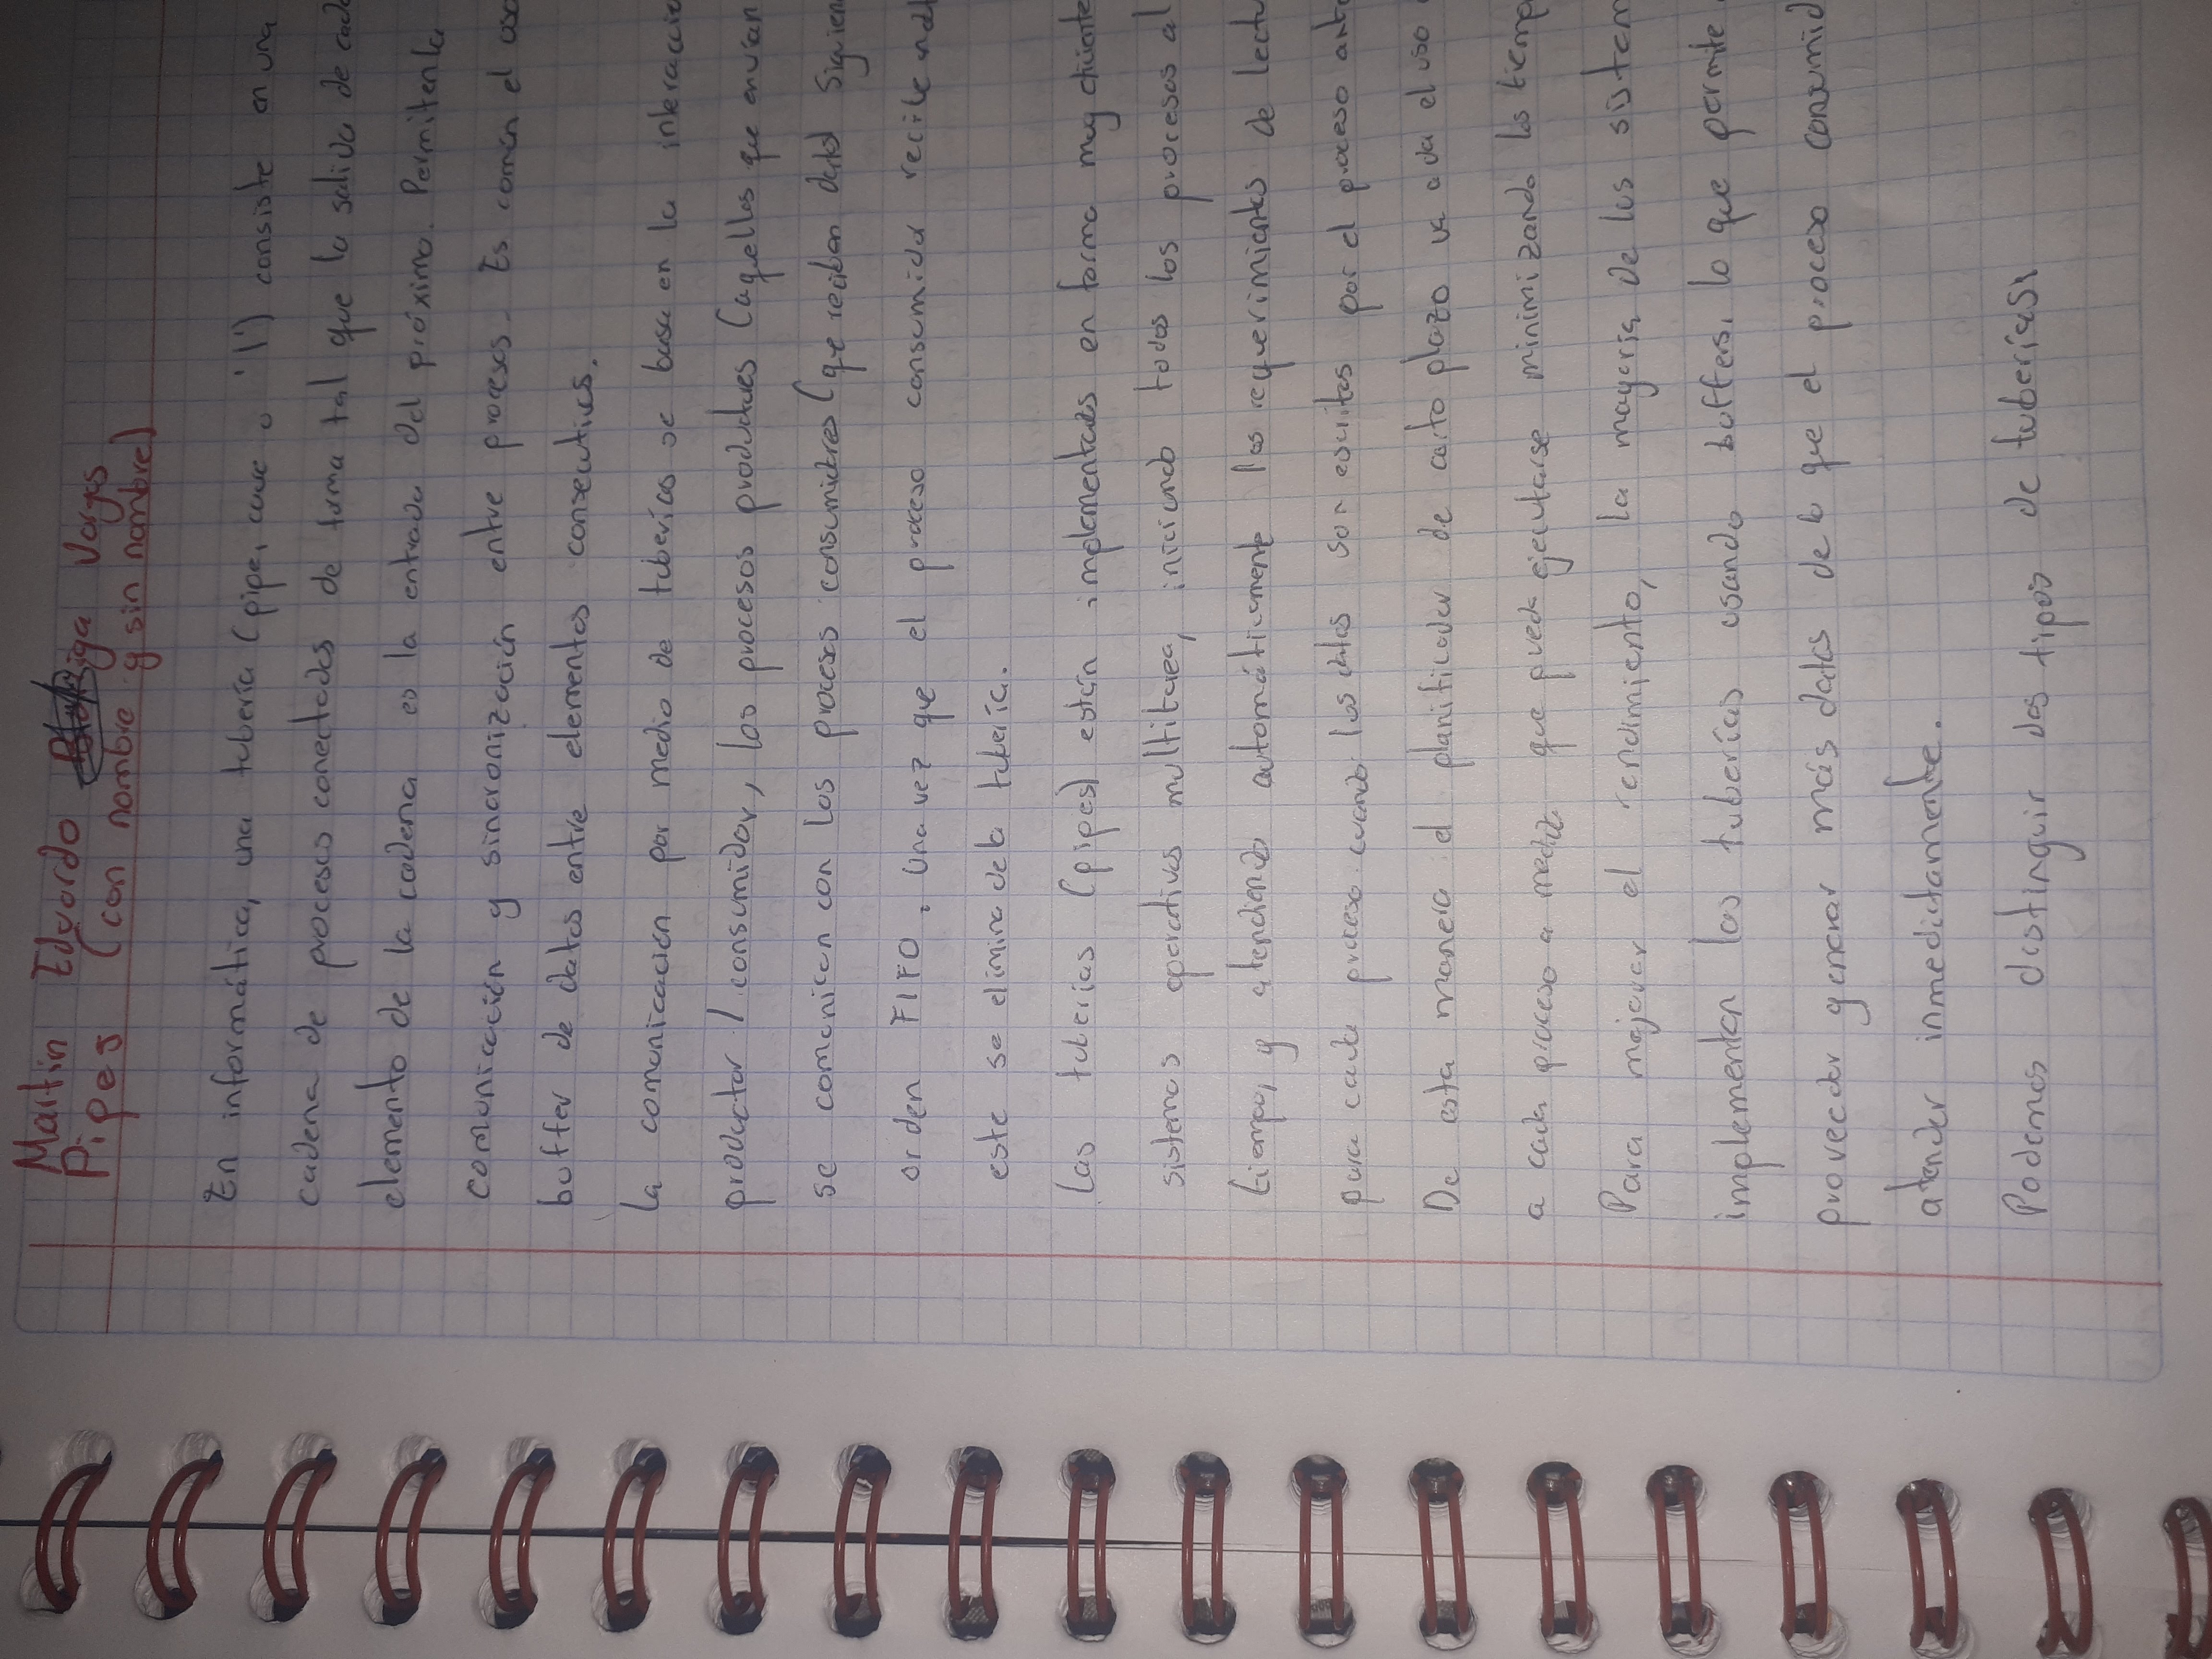 Martin Eduardo Vargas
Pipes (con nombre y sin nombre)
En informática, una tubería (pipe, o '|') consiste en una
cadena de procesos conectados de forma tal que la salida de cada
elemento de la cadena es la entrada del próximo. Permiten la
comunicación y sincronización entre procesos. Es común el uso
buffer de datos entre elementos consecutivos.
La comunicación por medio de tuberías se basa en la interaccio
productor / consumidor, los procesos productores (aquellos que envían
se comunican con los procesos consumidores (que reciben datos) siguien
orden FIFO. Una vez que el proceso consumidor recibe
este se elimina de la tubería.
Las tuberías (pipes) están implementadas en forma muy eficiente
sistemas operativos multitarea, iniciando todos los procesos al
tiempo, y atendiendo automáticamente los requerimientos de lectu
para cada proceso cuando los datos son escritos por el proceso ante
De esta manera el planificador de corto plazo va a dar el uso
a cada proceso a medida que pueda ejecutarse minimizando los tiemp
Para mejorar el rendimiento, la mayoría de los sistem
implementan las tuberías usando buffers, lo que permite
proveedor generar más datos de lo que el proceso consumid
atender inmediatamente.
Podemos distinguir dos tipos de tuberías: